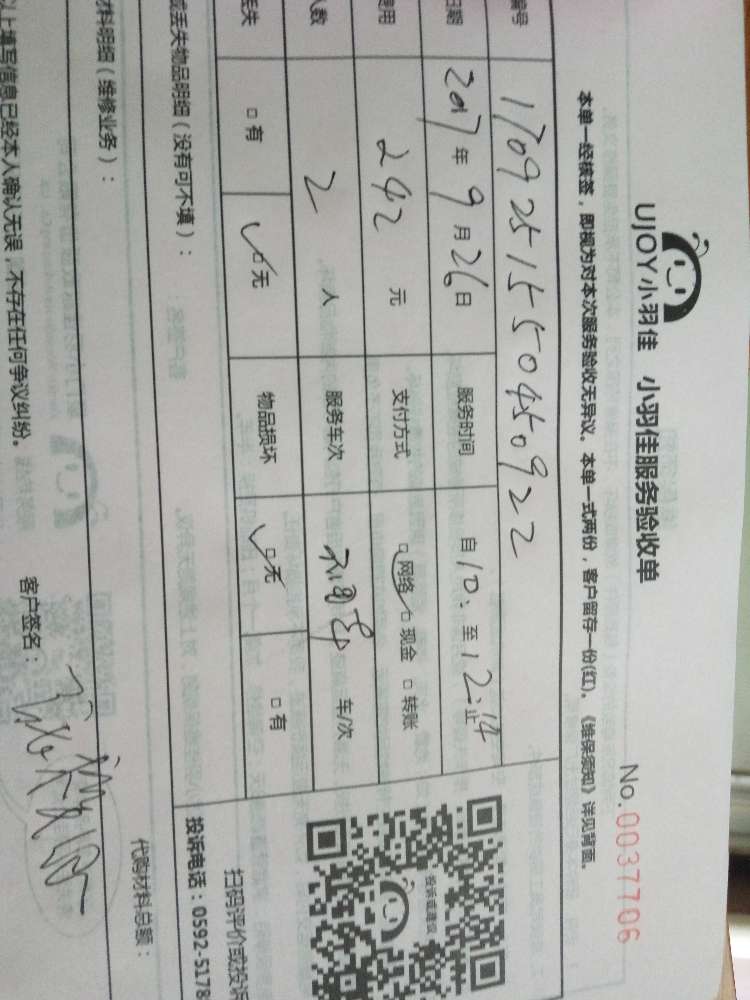 UJOY小羽佳 小羽佳服务验收单
No.0037706
本单一经核签，即视为对本次服务验收无异议。本单一式两份，客户留存一份(红)。《维保须知》详见背面。
编号 170925155045092 2
日期 2017年9月26日 服务时间 自10:至12:14止
费用 242 元 支付方式 □网络✓ □现金 □转账
人数 2 人 服务车次 车/次
丢失 □有 ✓□无 物品损坏 ✓□无 □有
或丢失物品明细（没有可不填）：
材料明细（维修业务）：
代购材料总额：
以上填写信息已经本人确认无误，不存在任何争议纠纷。
客户签名：
投诉或建议
扫码评价或投诉
投诉电话：0592-5178